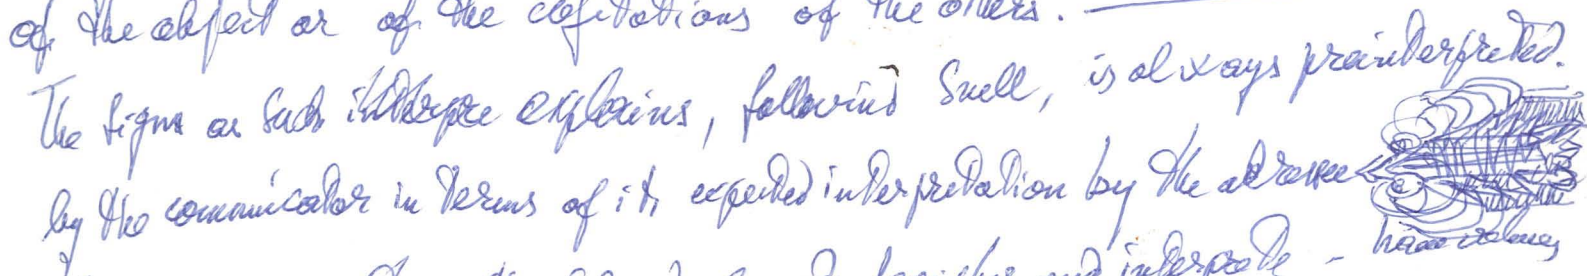 of the object or of the cogitations of the others.
The sign as such explains, following Snell, is always preinterpreted.
by the comunicator in terms of its expected interpretation by the adressee
and interprete -